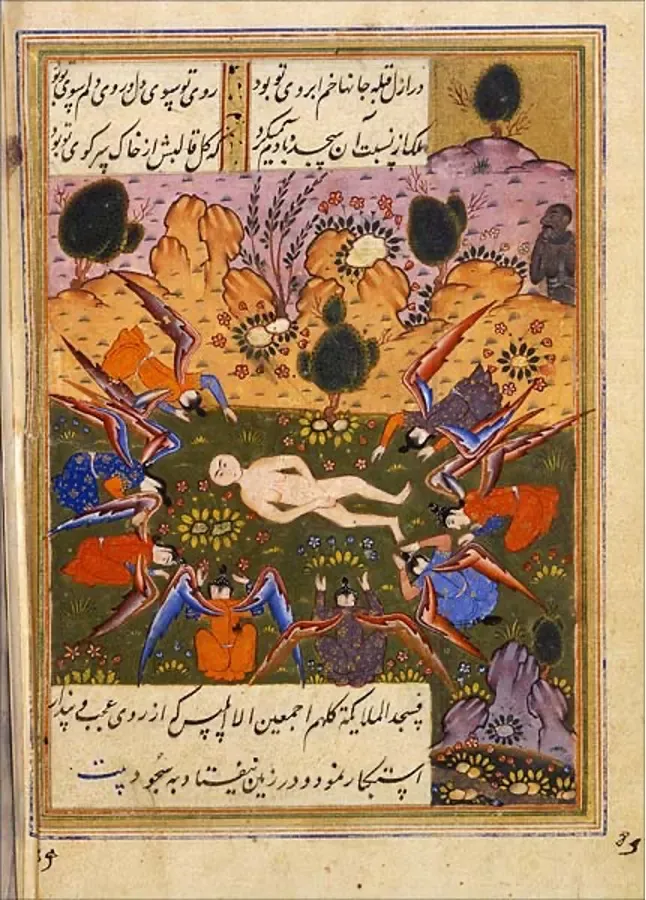 در ازل قبله جانها خم ابروی تو بود روی تو سوی دل و روی دلم سوی تو بود
ملک از نسبت آن سجده بآدم میکرد که گل قالبش از خاک سر کوی تو بود
فسجد الملایکة کلهم اجمعین الا ابلیس که از روی عجب و پندار
استکبار نمود و در زمین نیفتاد به سجود بیت